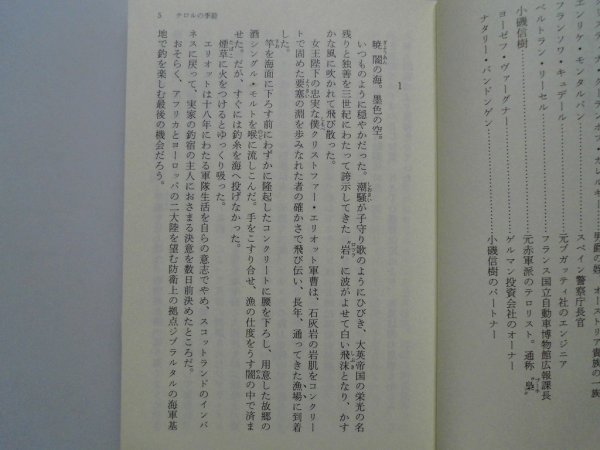 オーストリア貴族の一族
エンリケ・モンタルバン　スペイン警察庁長官
フランソワ・キュデール　元ブガッティ社のエンジニア
ベルトラン・リーセル　フランス国立自動車博物館広報課長
小磯信樹　元赤軍派のテロリスト。通称〝梟〟
ヨーゼフ・ヴァーグナー　ゲルマン投資会社のオーナー
ナタリー・バンドンゲン　小磯信樹のパートナー
5　テロルの季節
1
暁闇の海。墨色の空。
いつものように穏やかだった。潮騒が子守り歌のようにひびき、大英帝国の栄光の名
残りと独善を三世紀にわたって誇示してきた〝岩〟に波がよせて白い飛沫となり、かす
かな風に吹かれて飛び散った。
女王陛下の忠実な僕クリストファー・エリオット軍曹は、石灰岩の岩肌をコンクリー
トで固めた要塞の淵を歩みなれた者の確かさで飛び伝い、長年、通ってきた漁場に到着
した。
竿を海面に下ろす前にわずかに隆起したコンクリートに腰を下ろし、用意した故郷の
酒シングル・モルトを喉に流しこんだ。手をこすり合せ、漁の仕度をうす闇の中で済ま
せた。だが、すぐには釣糸を海へ投げなかった。
煙草に火をつけるとゆっくり吸った。
エリオットは十八年にわたる軍隊生活を自らの意志でやめ、スコットランドのインバ
ネスに戻って、実家の釣宿の主人におさまる決意を数日前決めたところだ。
おそらく、アフリカとヨーロッパの二大陸を望む防衛上の拠点ジブラルタルの海軍基
地で釣を楽しむ最後の機会だろう。